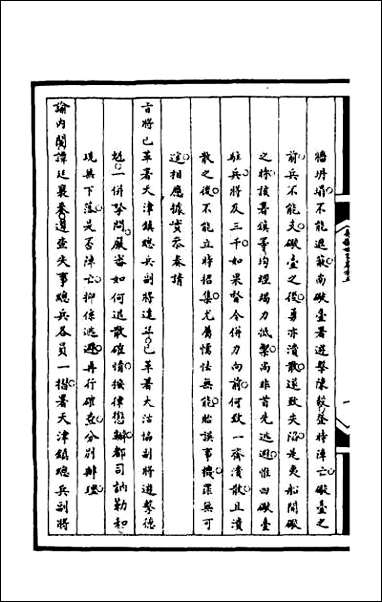 牆坍塌不能遮蔽南礮臺署遊擊陳毅登時陣亡礮臺之
前兵不能支礮臺之後勇亦潰散遂致失陷是夷船開礮
之時該署鎮等均理竭力抵禦尚非首先逃避惟四礮臺
駐兵將及三千如果督令併力向前何致一齊潰散且潰
散之後不能立時招集尤屬懦怯無能貽誤事機罪無可
逭相應據實恭奏請
旨將已革署天津鎮總兵副將達年已革署大沽協副將遊擊德
魁一併拏問嚴審如何逃散確情按律懲辦都司訥勒和
現無下落是否陣亡抑係逃避再行確查分別辦理
諭內閣譚廷襄奏遵查失事總兵各員一摺署天津鎮總兵副將